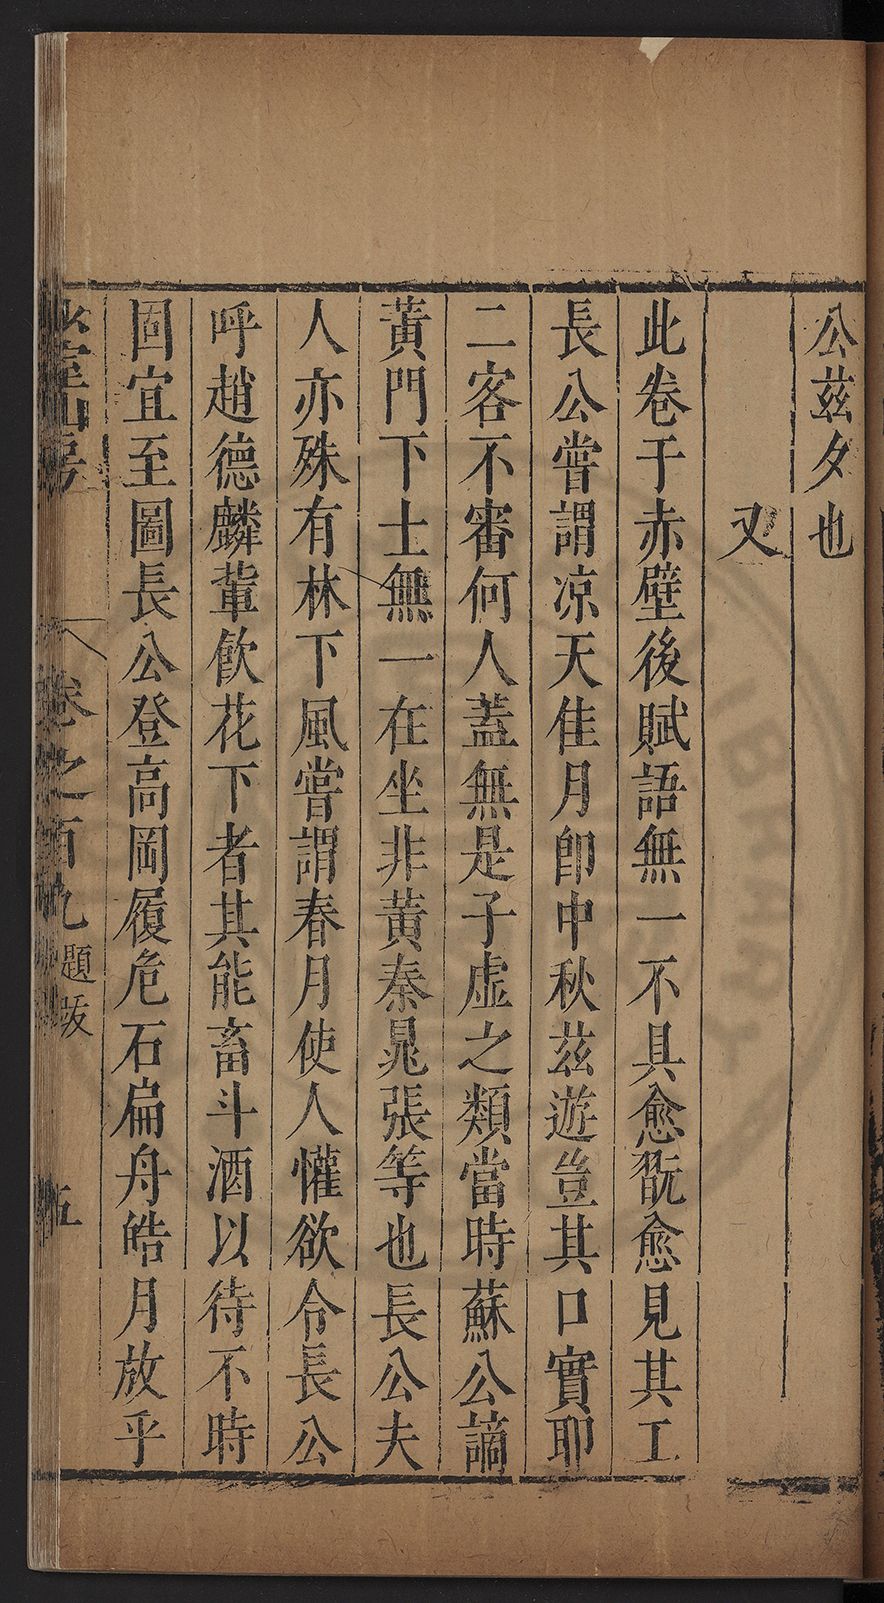 公茲夕也
又
此卷于赤壁後賦語無一不具愈翫愈見其工
長公嘗謂凉天佳月卽中秋茲遊豈其口實耶
二客不審何人蓋無是子虛之類當時蘇公謫
黃門下士無一在坐非黃秦晁張等也長公夫
人亦殊有林下風嘗謂春月使人懽欲令長公
呼趙德麟輩飲花下者其能畜斗酒以待不時
固宜至圖長公登高岡履危石扁舟皓月放乎
山房
卷之百九 題跋
五